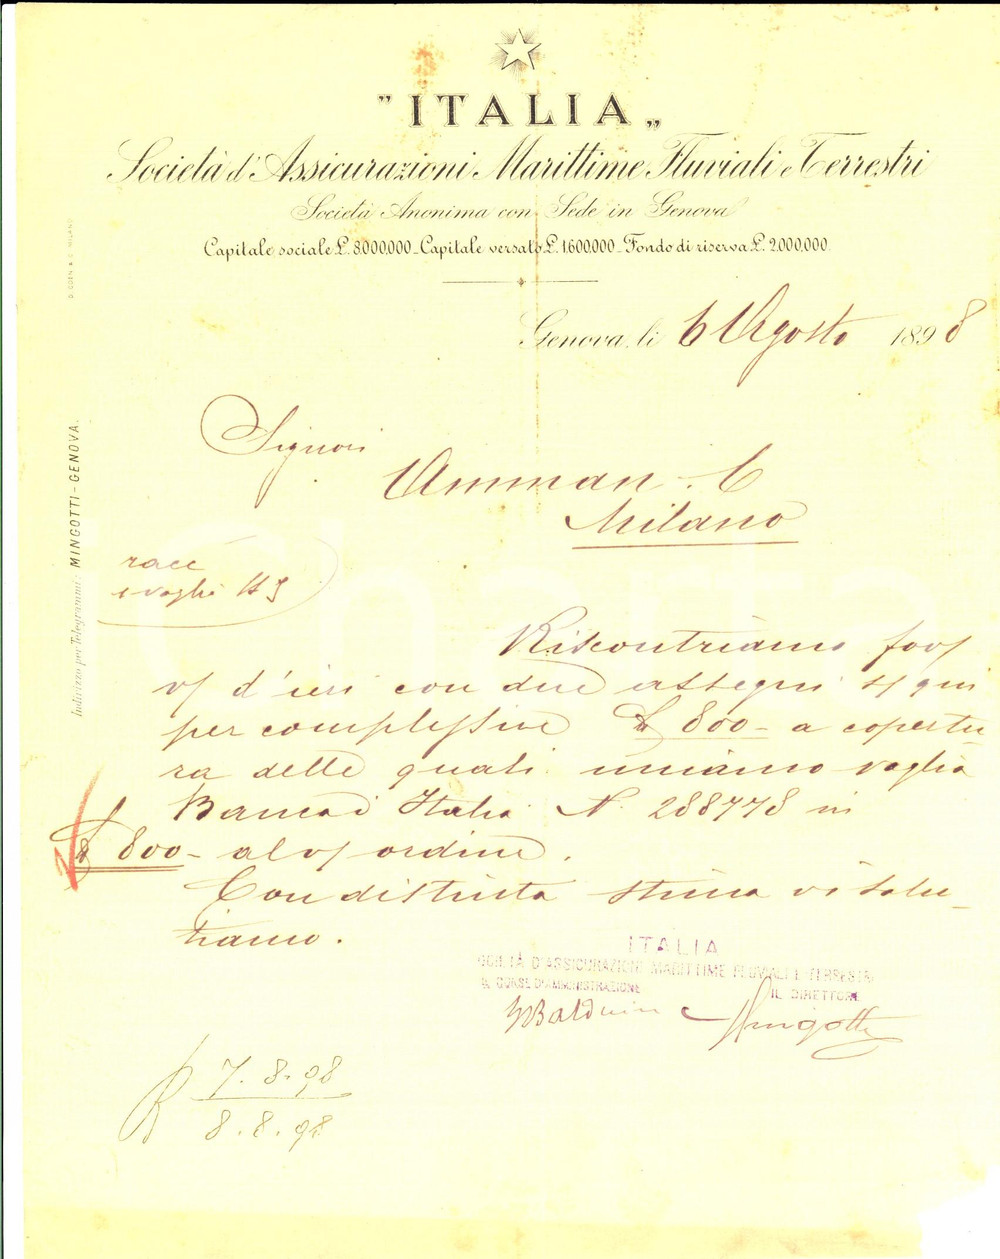 "ITALIA„
Società d'Assicurazioni Marittime Fluviali e Terrestri
Società Anonima con Sede in Genova
Capitale sociale L. 8.000.000 - Capitale versato L. 1.600.000 - Fondo di riserva L. 2.000.000
Genova, li 6 Agosto 1898
Signori
Amman & C
Milano
racc
1 vaglia
Riscontriamo
v/ d'ieri con due assegni s/ qui
per complessive £ 800 - a copertu
ra delle quali uniamo vaglia
Banca d'Italia N. 288778 in
£ 800 - al v/ ordine.
Con distinta stima vi salu-
tiamo.
ITALIA
SOCIETÀ D'ASSICURAZIONI MARITTIME FLUVIALI E TERRESTRI
IL CONSE D'AMMINISTRAZIONE IL DIRETTORE
Balduin Mingotti
R 7.8.98
8.8.98
Indirizzo per Telegrammi: MINGOTTI-GENOVA.
MILANO